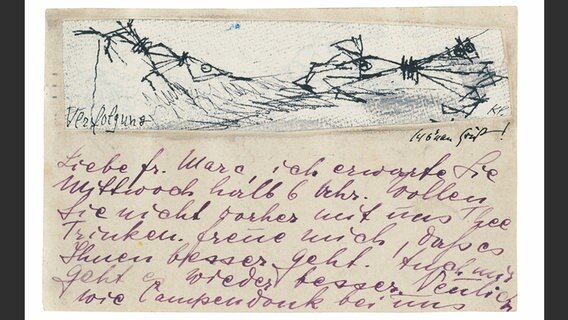 Verfolgung
Kl.
schönen Gruß!
Liebe fr. Marc, ich erwarte Sie
Mittwoch halb 6 Uhr. Wollen
Sie nicht vorher mit uns Thee
Trinken. freue mich, dass es
Ihnen besser geht. Auch mir
geht es wieder besser. Neulich
wie Campendonk bei uns